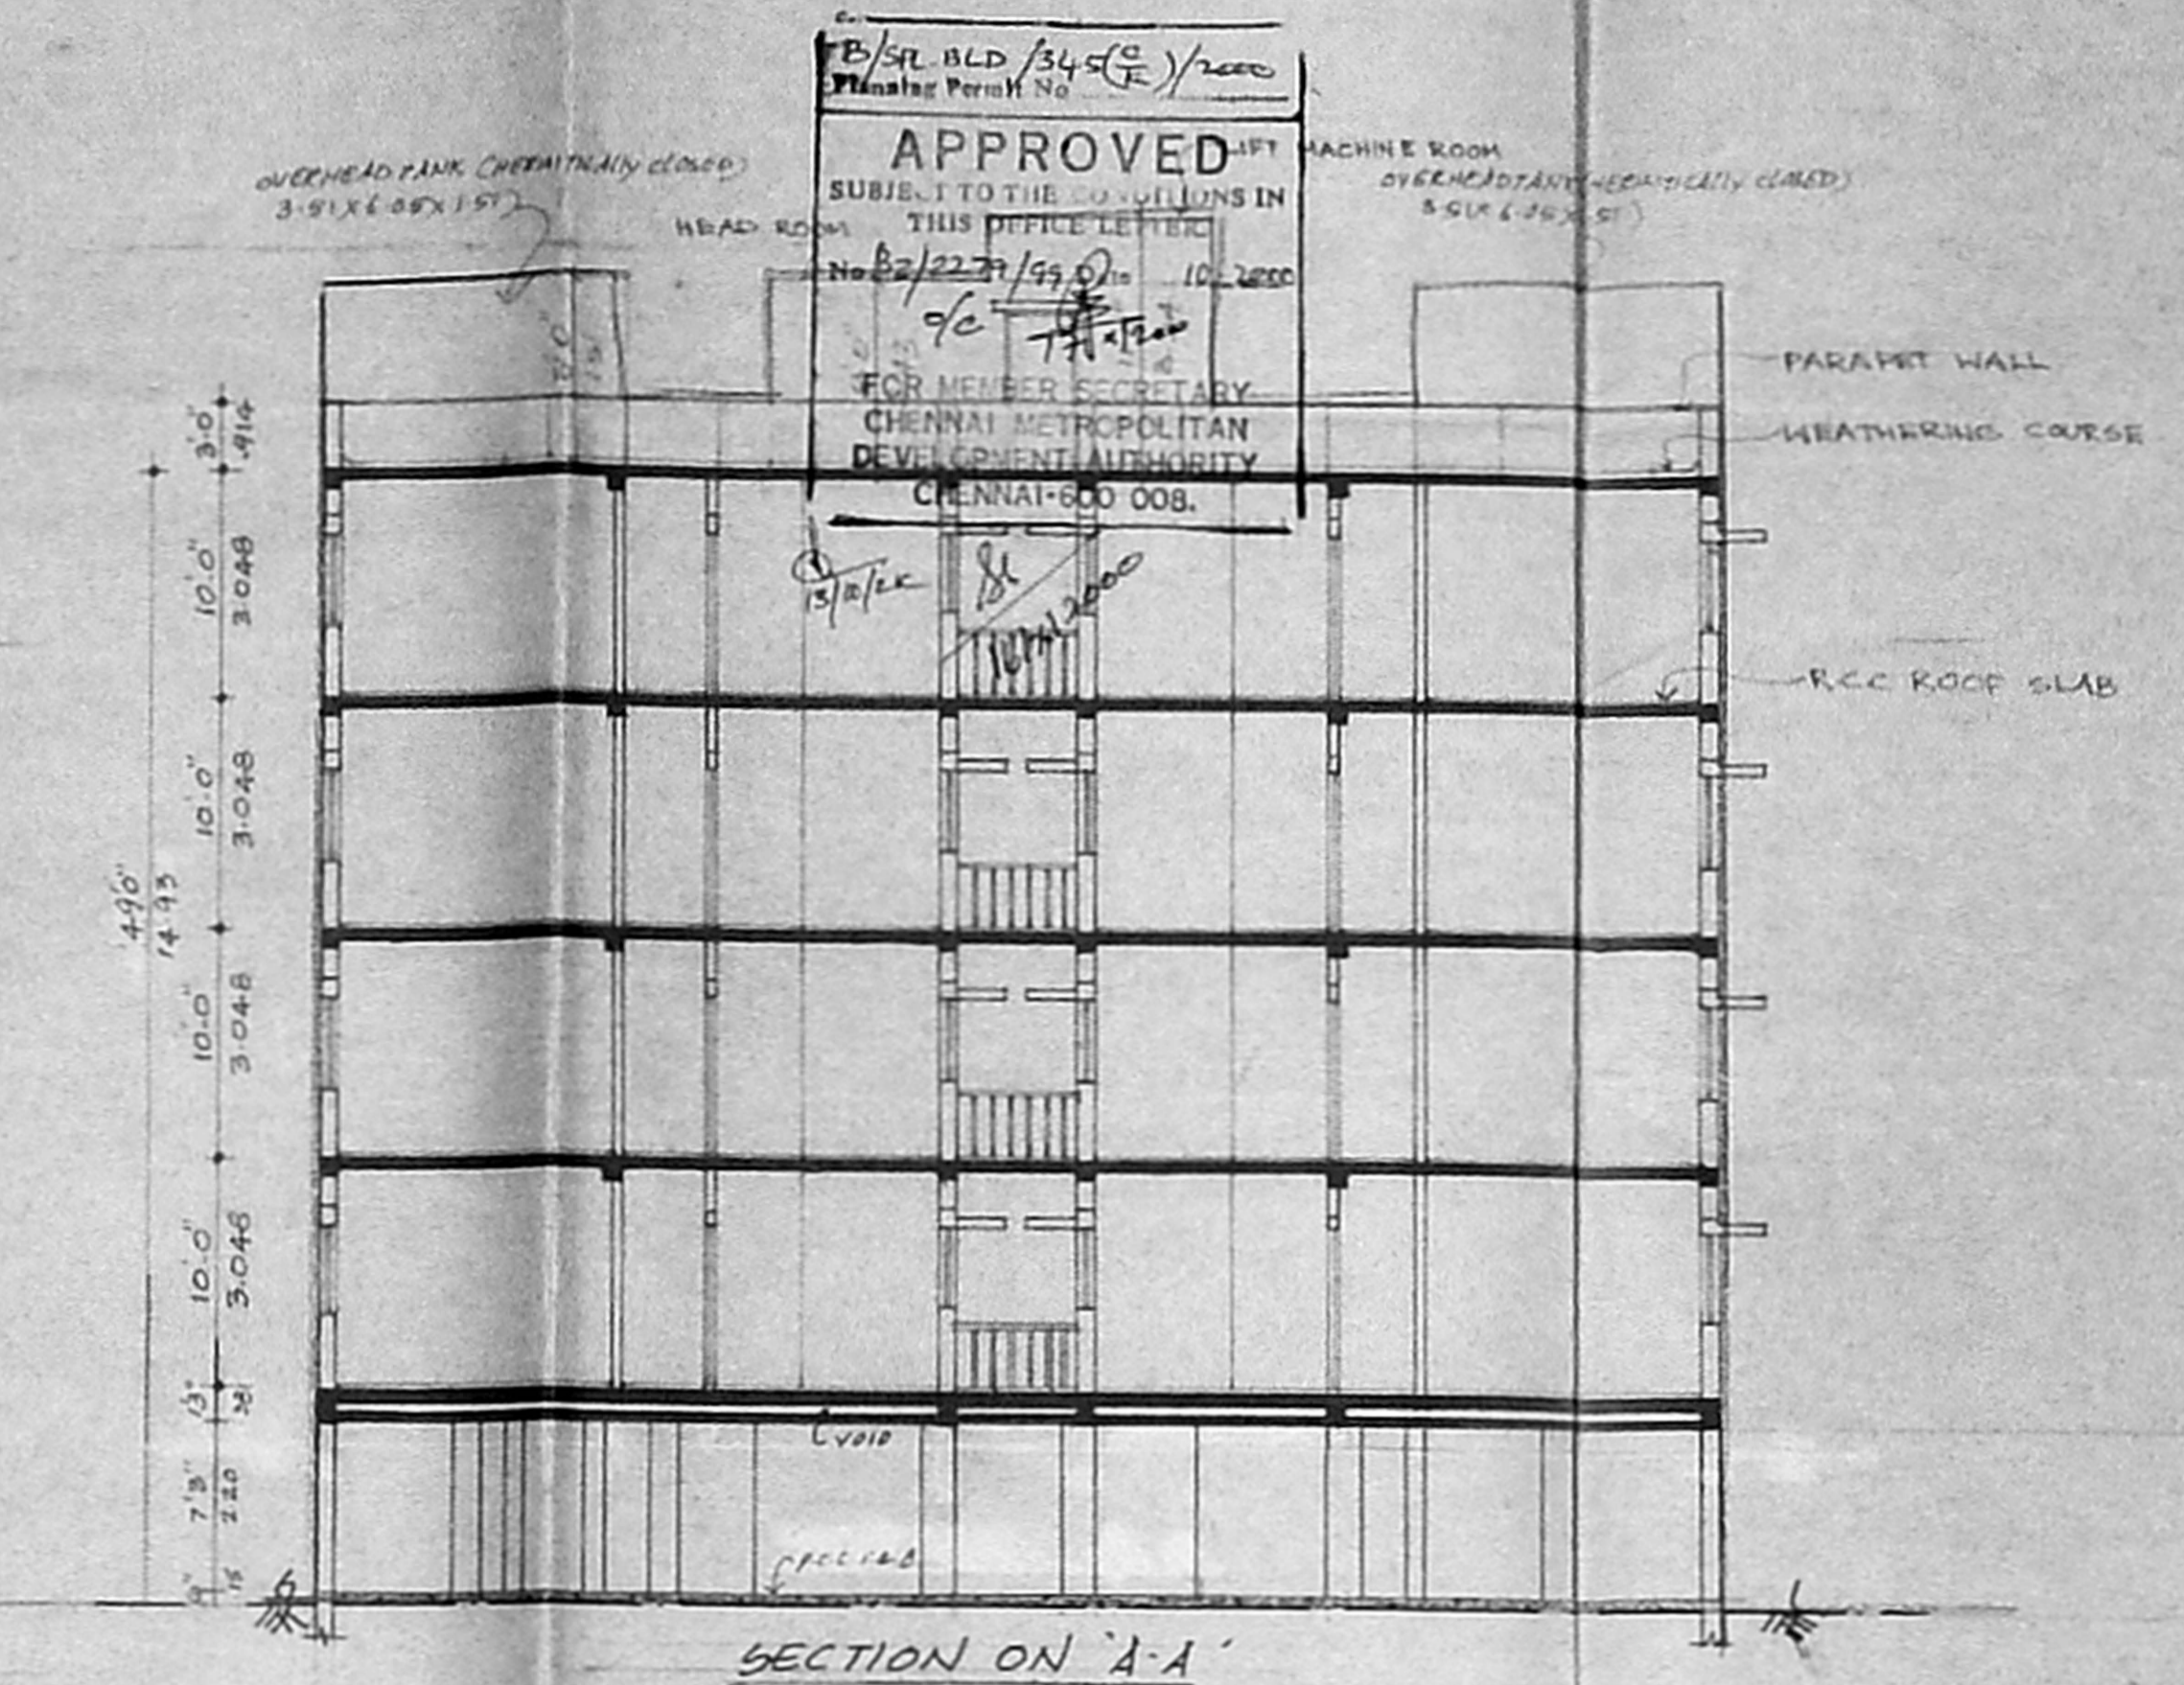 B/SPL.BLD/345(C/E)/2000
Planning Permit No
APPROVED
SUBJECT TO THE CONDITIONS IN
THIS OFFICE LETTER
No B2/2279/99 10-2000
FOR MEMBER SECRETARY
CHENNAI METROPOLITAN
DEVELOPMENT AUTHORITY
CHENNAI-600 008.
LIFT MACHINE ROOM
OVERHEAD TANK (HERMITICALLY CLOSED)
3.51 X 6.05 X 1.51
HEAD ROOM
OVERHEAD TANK HERMITICALLY CLOSED)
PARAPET WALL
WEATHERING COURSE
RCC ROOF SLAB
3'0"
.914
10'.0"
3.048
10'.0"
3.048
10'.0"
3.048
10'.0"
3.048
49'0"
14.93
1'3"
.381
7'3"
2.20
9"
.15
13/10/2K
VOID
SECTION ON 'A-A'